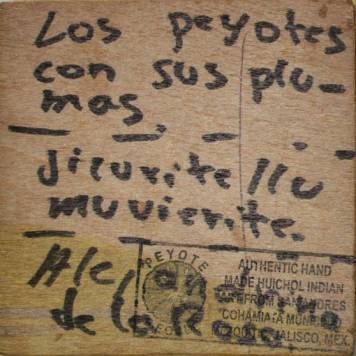 Los peyotes
con sus plu-
mas.
Jicurite llu
muvierite.
de la
PEYOTE
AUTHENTIC HAND
MADE HUICHOL INDIAN
ART FROM SAN ANDRES
COHAMIATA
JALISCO, MEX